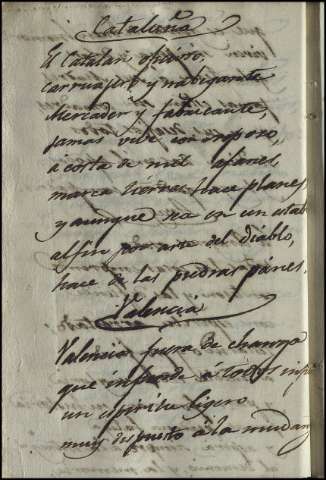 Cataluña
El Catalan
carruajero y navegante
Mercader y fabricante,
jamas vive con reposo,
a costa de mil afanes,
marca tierras, hace planes
y aunque no es un establ
al fin por arte del diablo,
hace de las piedras panes.
Valencia
Valencia fuera de chanza
que infunde á todos infi
un espiritu ligero
muy dispuesto á la mudanz